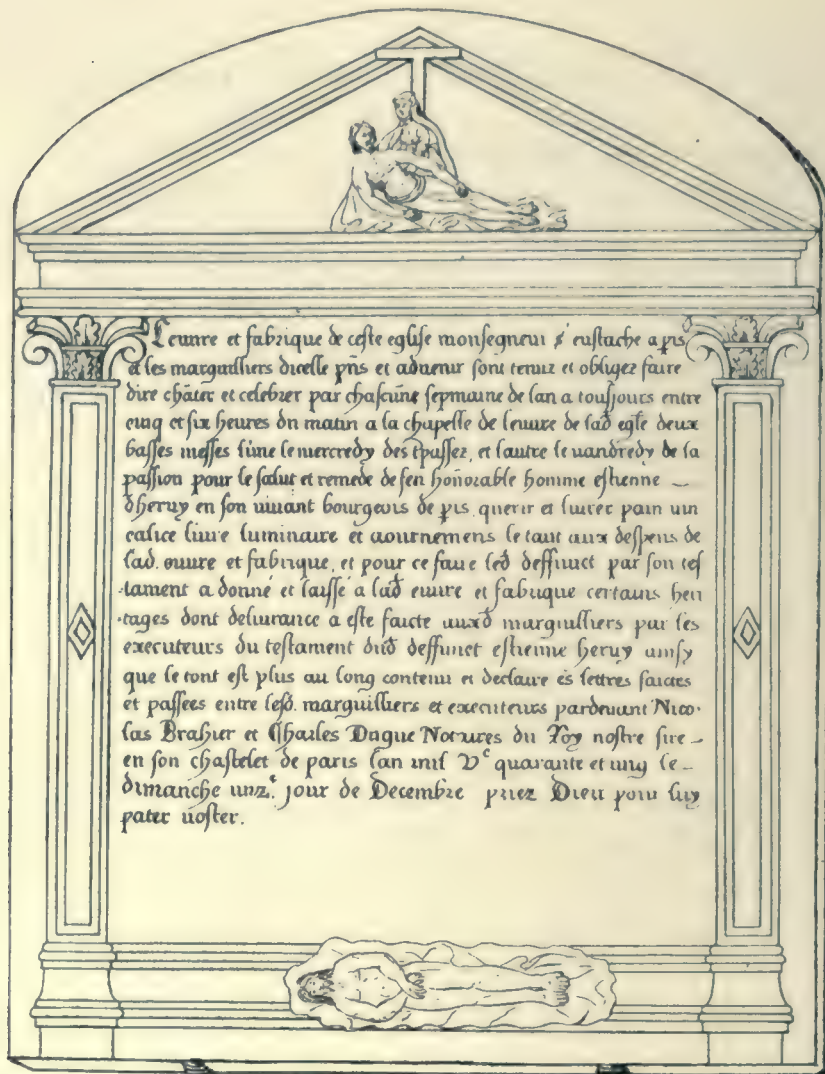 Leuvre et fabrique de ceste eglise monsegneur s' eustache a pis
& les marguilliers dicelle pñs et advenir sont tenuz et obligez faire
dire chãter et celebrer par chascune sepmaine de lan a tousjours entre
cinq et six heures du matin a la chapelle de leuvre de lad egle deux
basses messes lune le mercredy des tpassez, et lautre le vandredy de la
passion pour le salut et remede de feu honorable homme estienne
dheruy en son vivant bourgeois de pis querir et livrer pain vin
calice livre luminaire et aournemens le tout aux despens de
lad. euvre et fabrique, et pour ce faire led deffunct par son tes
tament a donné et laissé a lad euvre et fabrique certains heri
tages dont delivrance a este faicte auxd marguilliers par les
executeurs du testament dud deffunct estienne heruy ainsy
que le tout est plus au long contenu et declaire es lettres faictes
et passees entre lesd. marguilliers et executeurs pardevant Nico-
las Brahier et Charles Dugue Notaires du Roy nostre sire
en son chastelet de paris lan mil Vᶜ quarante et ung le
dimanche unz.ᵉ jour de Decembre priez Dieu pour luy
pater noster.